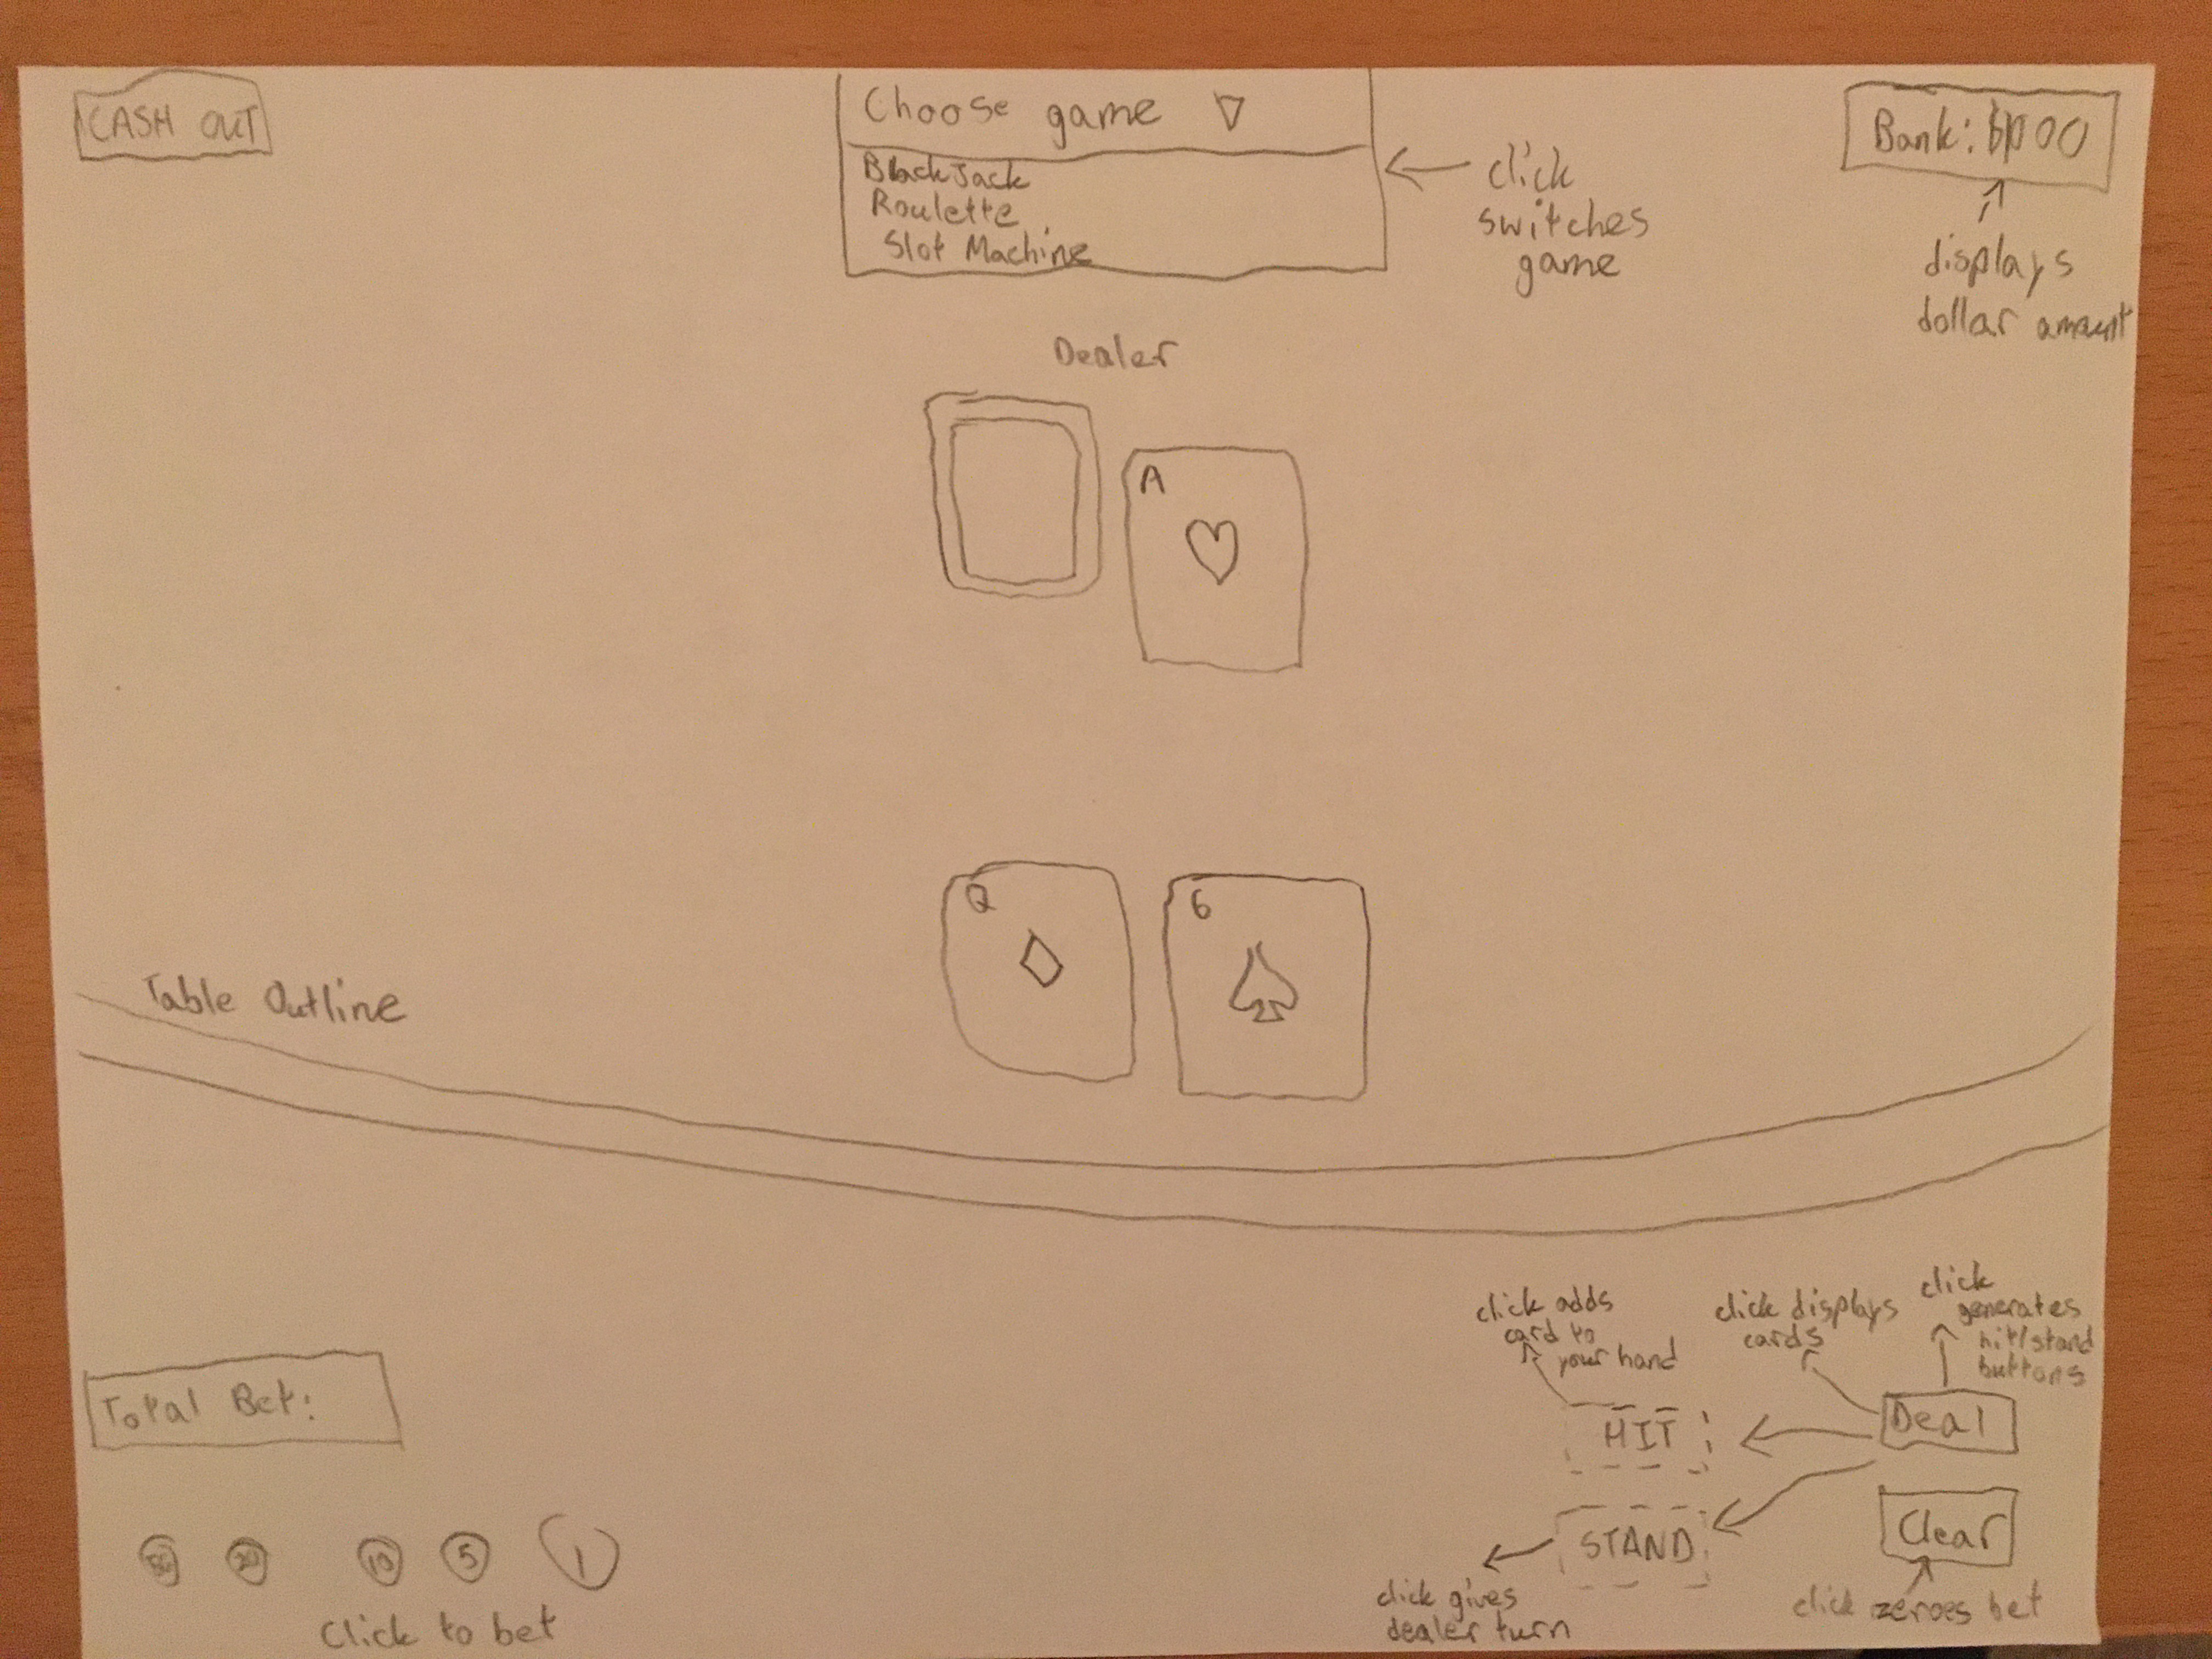 CASH OUT
Choose game ▽
BlackJack
Roulette
Slot Machine
click
switches
game
Bank: $1000
displays
dollar amount
Dealer
A
Q
6
Table Outline
Total Bet:
20
10
5
1
Click to bet
click adds
card to
your hand
HIT
STAND
click gives
dealer turn
click displays
cards
click
generates
hit/stand
buttons
Deal
Clear
click zeroes bet